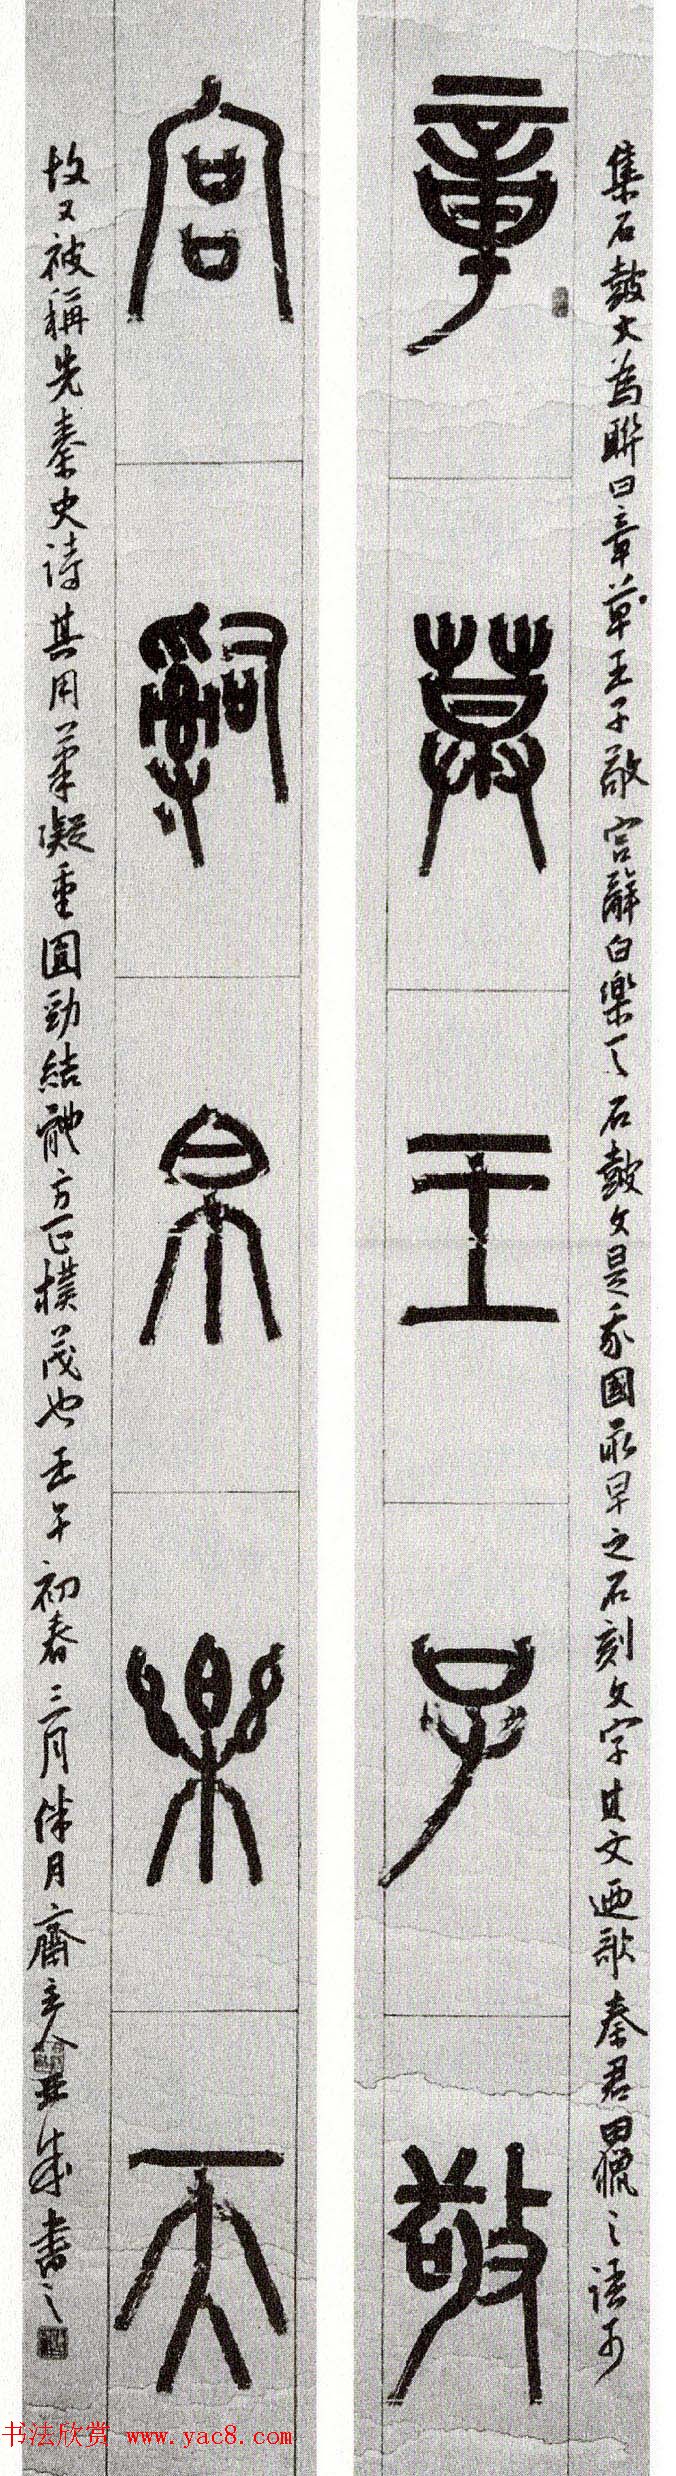 集石鼓文為聯曰章草王子敬宫辭白樂天石鼓文是我國最早之石刻文字其文迺歌秦君田獵之語為
章草王子敬
宫辭白樂天
故又被稱先秦史詩其用筆凝重圓勁結體方正樸茂也壬午初春三月伴月齋主人亞成書之
书法欣赏 www.yac8.com